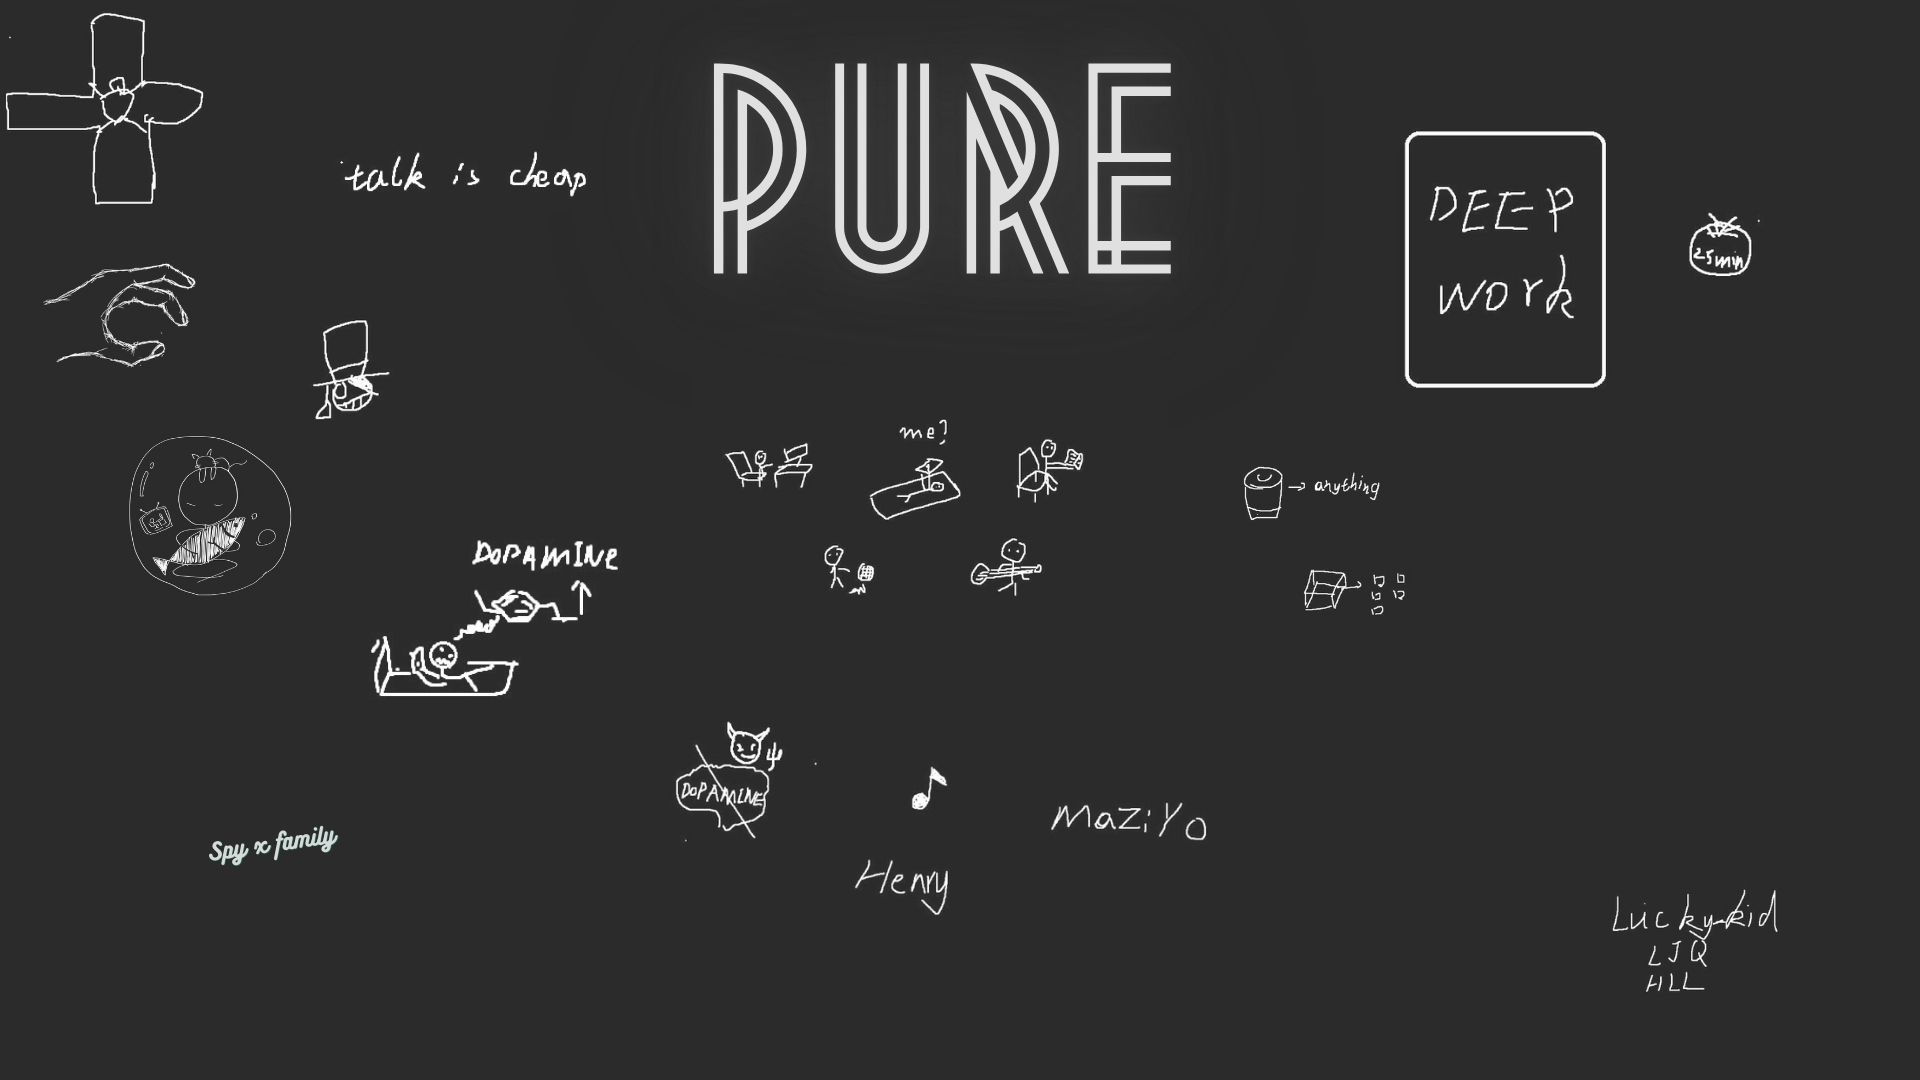 PURE
talk is cheap
DEEP
WORK
25min
me?
→ anything
DOPAMINE
DOPAMINE
MaZiYo
Spy x family
Henry
Lucky-kid
LJQ
HLL